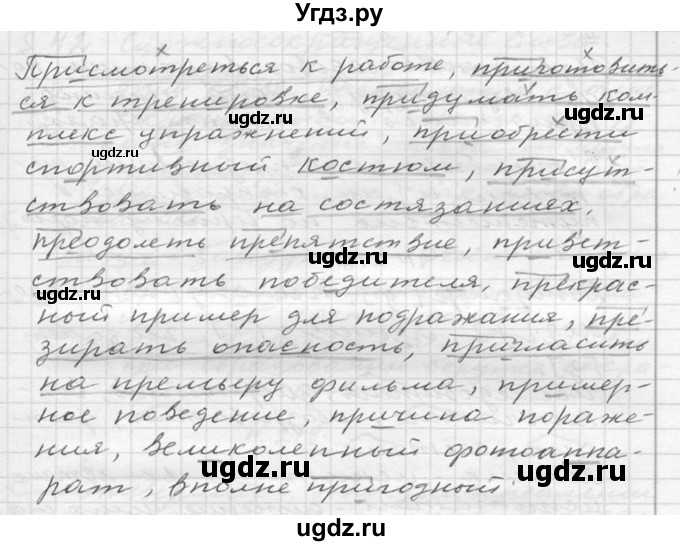 Угдз.ру
Присмотреться к работе, приготовить-
ся к тренировке, придумать ком-
плекс упражнений, приобрести
спортивный костюм, присут-
ствовать на состязаниях,
преодолеть препятствие, привет-
ствовать победителя, прекрас-
ный пример для подражания, пре-
зирать опасность, пригласить
на премьеру фильма, пример-
ное поведение, причина пораже-
ния, великолепный фотоаппа-
рат, вполне пригодный
ugdz.ru
ugdz.ru
ugdz.ru
ugdz.ru
ugdz.ru
ugdz.ru
ugdz.ru
ugdz.ru
ugdz.ru
ugdz.ru
ugdz.ru
ugdz.ru